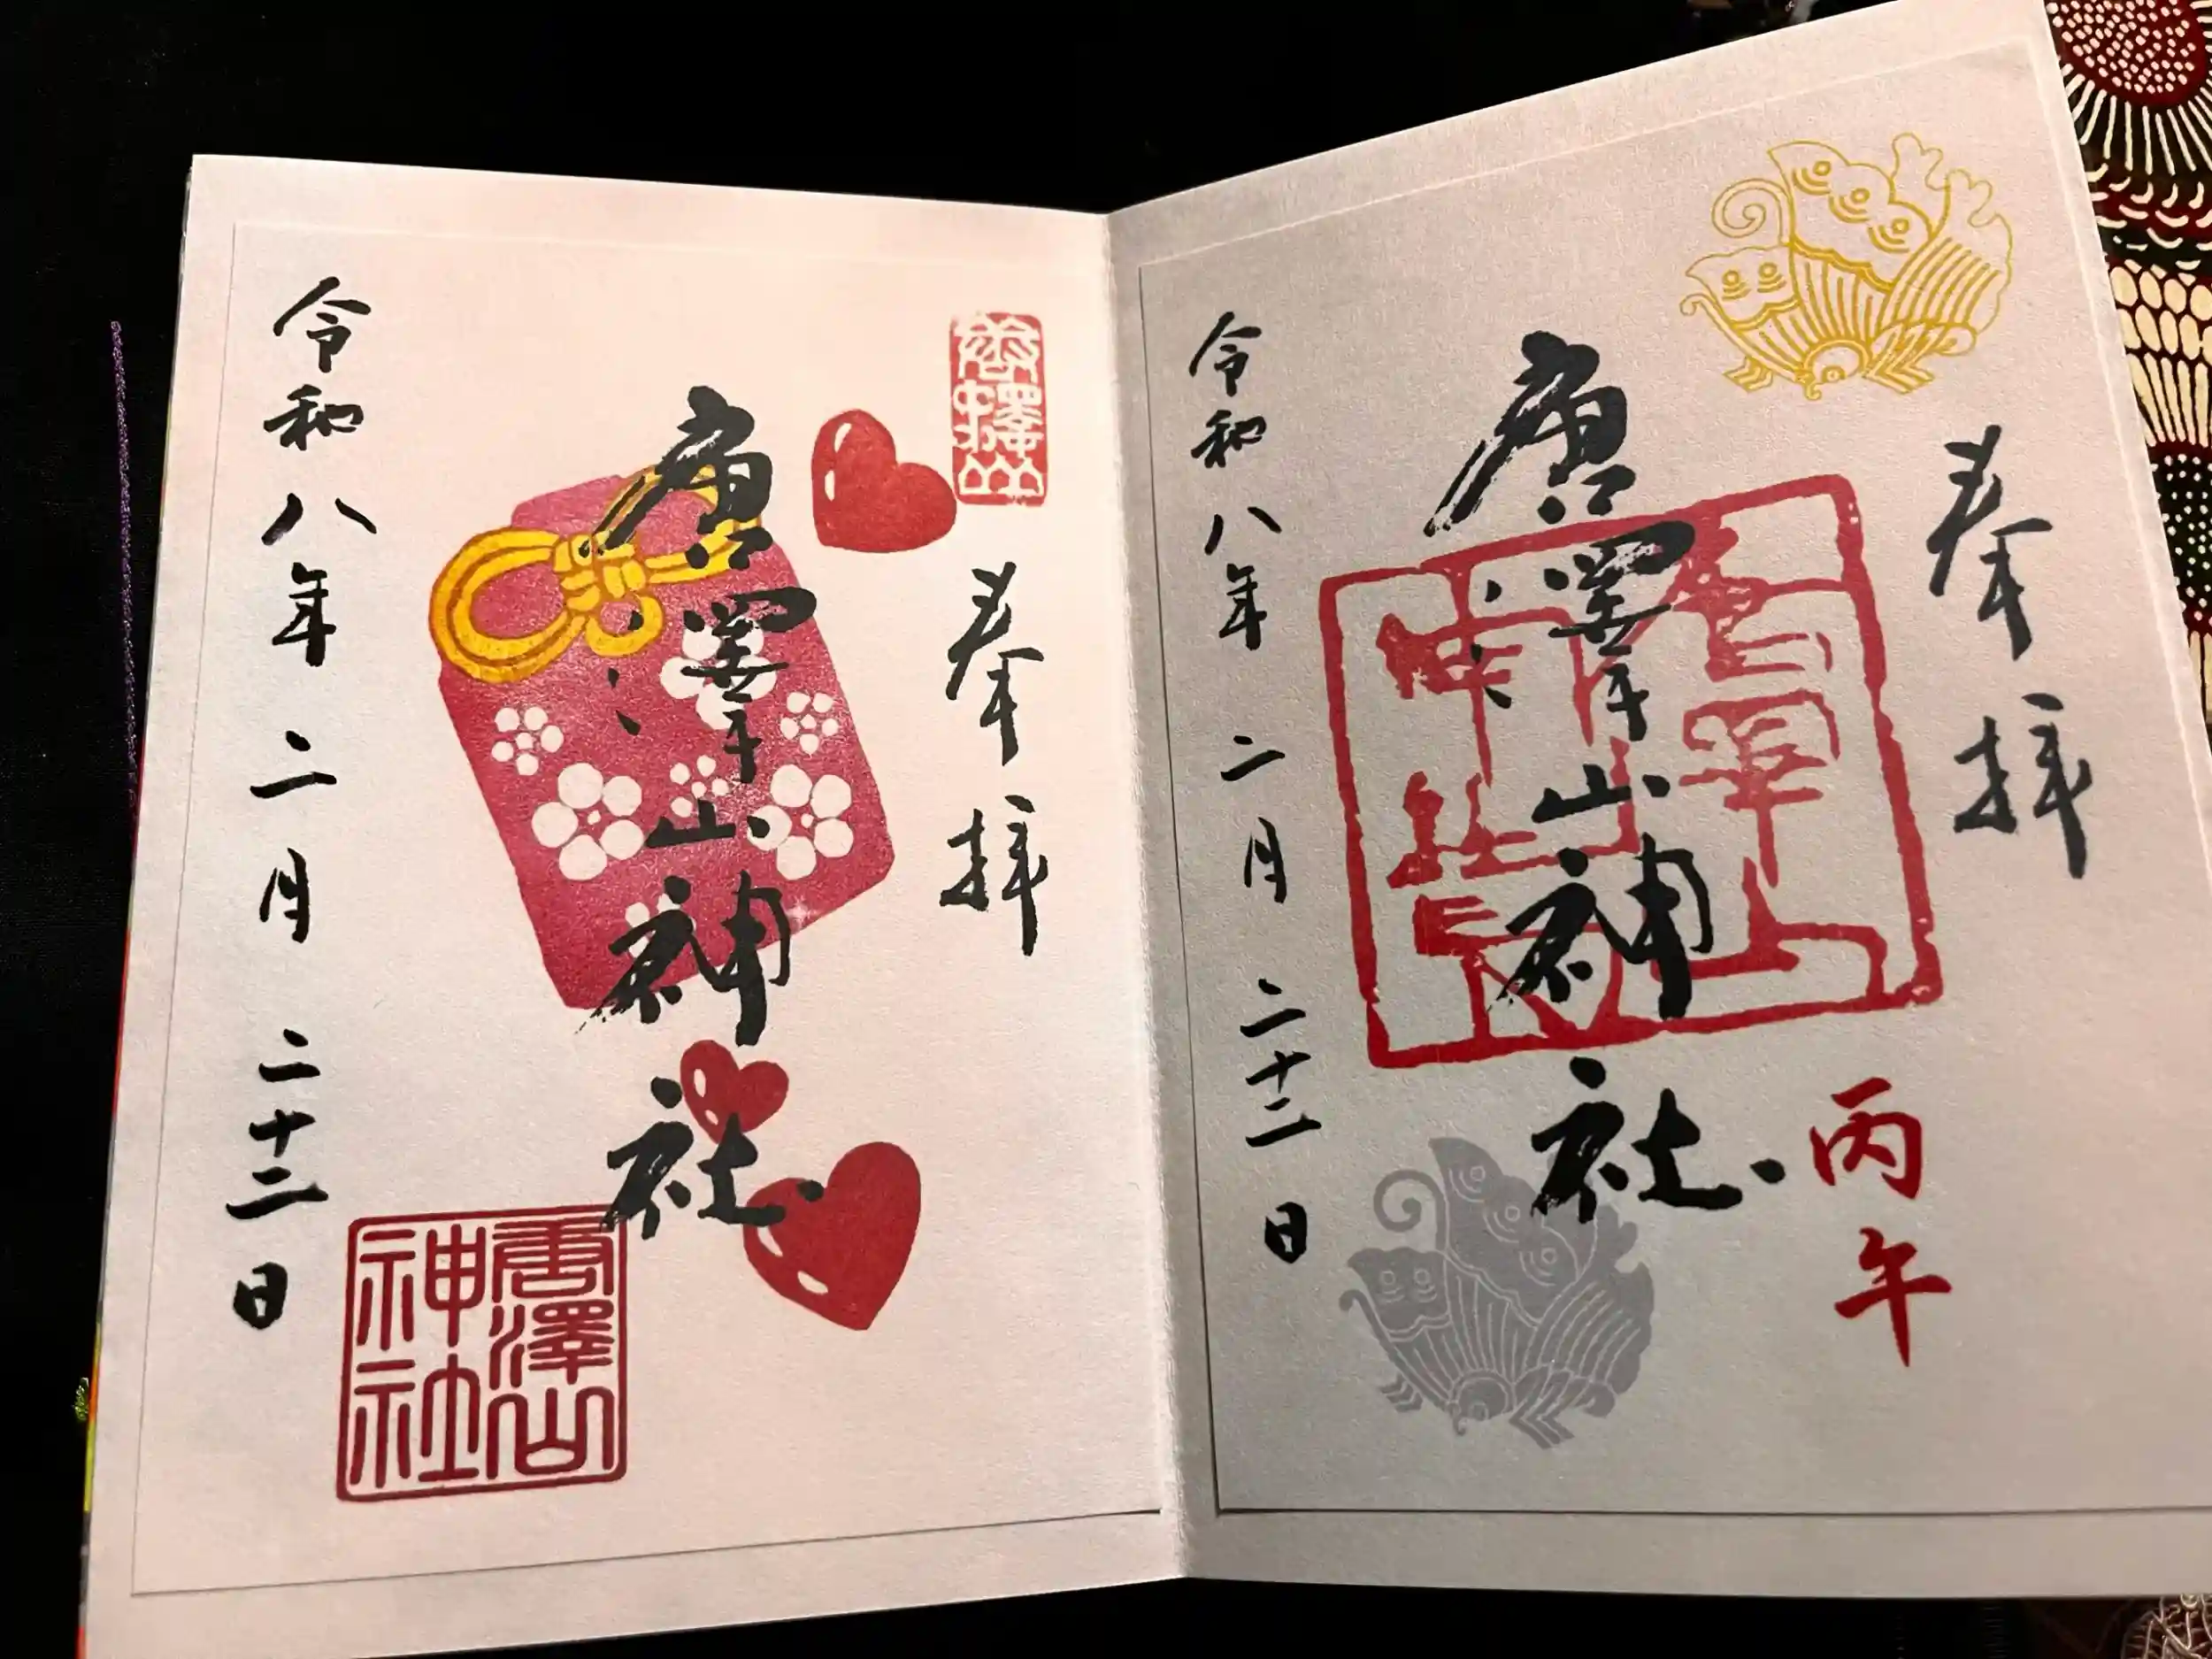 奉拝
丙午
唐澤山神社
令和八年二月二十二日
唐澤山
奉拝
唐澤山神社
唐澤山
神社
令和八年二月二十二日